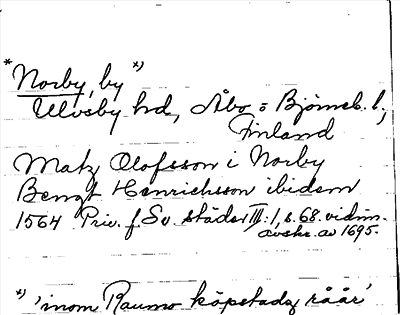 * Norby, by *)
Ulvsby hd, Åbo = Björneb. l.,
Finland
Matz Olofsson i Norby
Bengt Henrichsson ibidem
1564 Priv. f. Sv. städer III: 1, s. 68. vidim.
avskr. av 1695.
*) 'inom Raumo köpstadz råår'